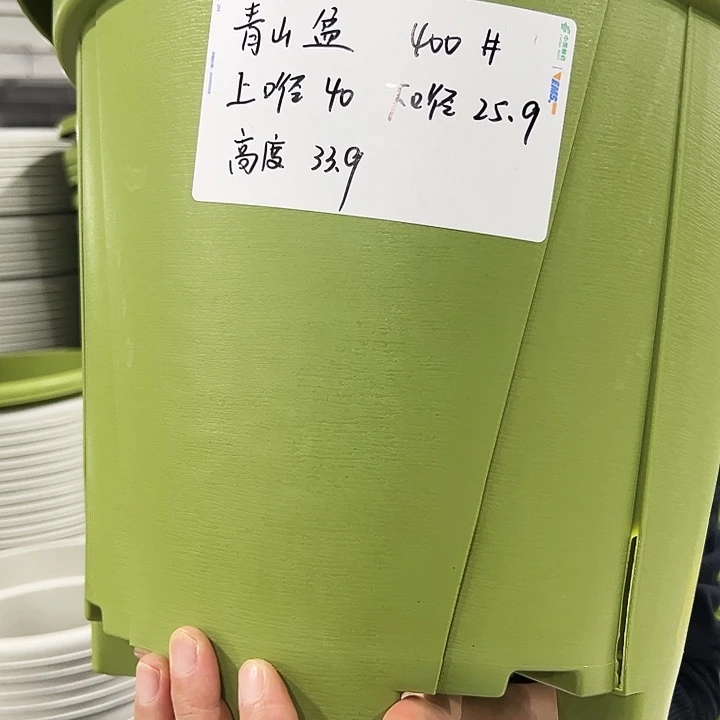 青山盆 400#
上口径 40 下口径 25.9
高度 33.9
EMS